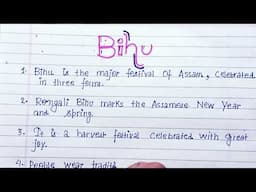 Bihu
1. Bihu is the major festival of Assam, celebrated
in three forms.
2. Rongali Bihu marks the Assamese New Year
and spring.
3. It is a harvest festival celebrated with great
joy.
4. People wear tradit